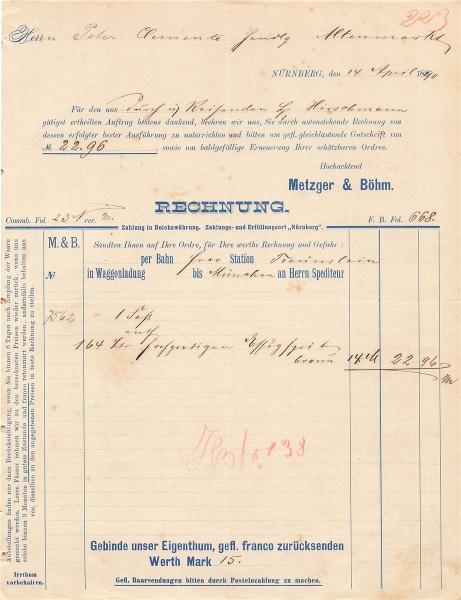 223
Herrn Peter Clemente Handlg Altenmarkt
NÜRNBERG, den 14 April 1890
Für den uns durch u/ Reisenden H. Hirschmann
gütigst ertheilten Auftrag bestens dankend, beehren wir uns, Sie durch untenstehende Rechnung von
dessen erfolgter bester Ausführung zu unterrichten und bitten um gefl. gleichlautende Gutschrift von
M. 22.96 sowie um baldgefällige Erneuerung Ihrer schätzbaren Ordres.
Hochachtend
Metzger & Böhm.
RECHNUNG.
Commb. Fol. 23 rec. F. B. Fol. 668.
Zahlung in Reichswährung. Zahlungs- und Erfüllungsort „Nürnberg".
M. & B. Sandten Ihnen auf Ihre Ordre, für Ihre werthe Rechnung und Gefahr:
per Bahn frco Station Traunstein
№ in Waggonladung bis München an Herrn Spediteur
7562 1 Faß
enth
164 Ltr hochgradigen Essigsprit
braun 14 M 22 96
138
Gebinde unser Eigenthum, gefl. franco zurücksenden
Werth Mark 15.
Gefl. Baarsendungen bitten durch Posteinzahlung zu machen.
Aufstellungen finden nur dann Berücksichtigung, wenn Sie binnen 8 Tagen nach Empfang der Waare
gemacht werden. Leere Fässer nehmen wir zu den berechneten Preisen wieder zurück, wenn uns
solche binnen 3 Monaten in gutem Zustande und franco retournirt werden, andernfalls behalten uns
vor, dieselben zu den angegebenen Preisen in feste Rechnung zu stellen.
Irrthum
vorbehalten.